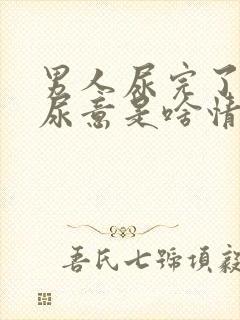 男人尿完了
尿意是啥情
吾氏七號項毅